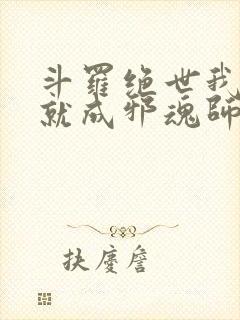 斗羅绝世我
就成邪魂師
扶廖詹